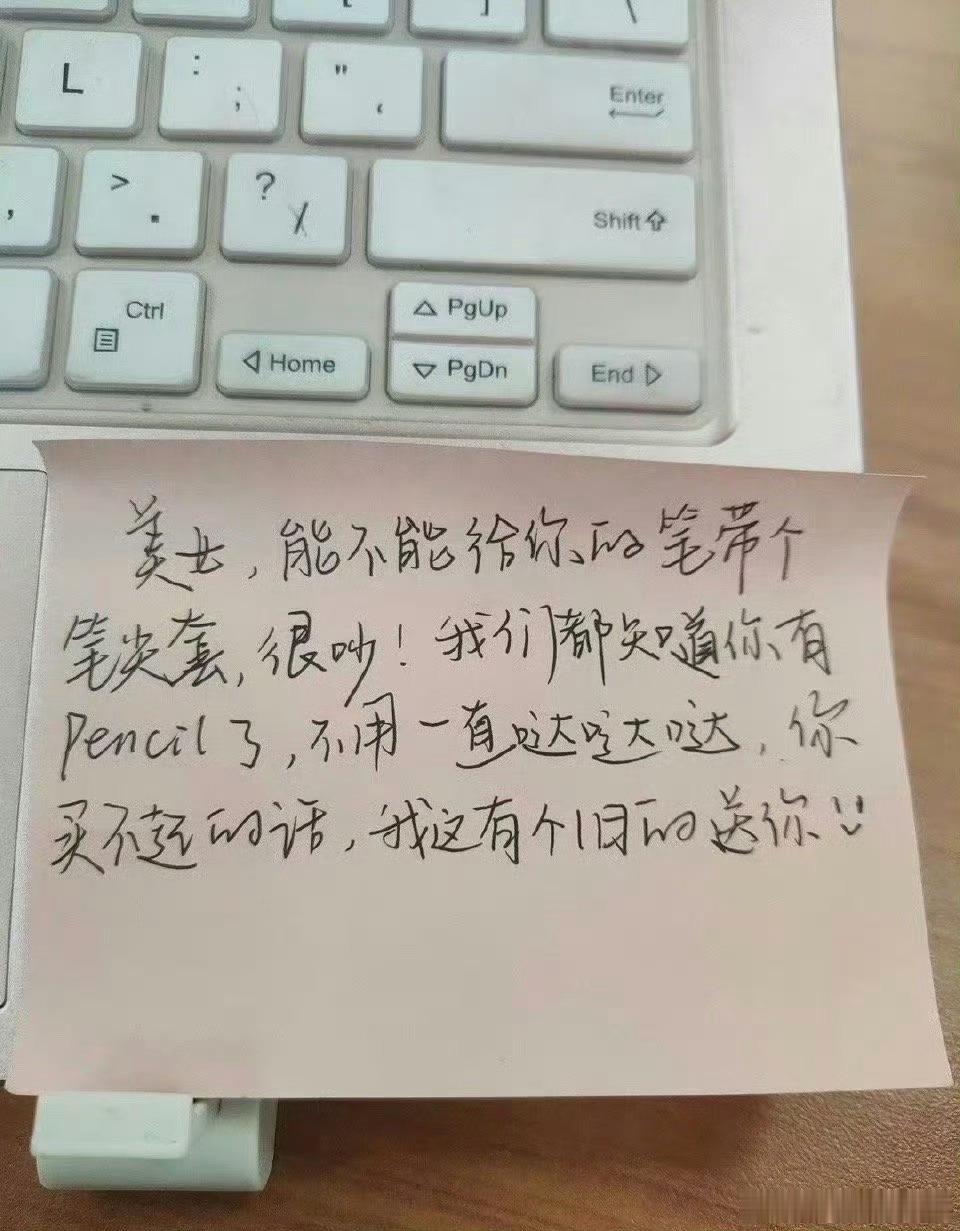 [ ]
\
L
: ;
" ‘
Enter
,
> .
? /
Shift
Ctrl
PgUp
Home
PgDn
End
美女,能不能给你的笔带个
笔尖套,很吵!我们都知道你有
Pencil了,不用一直哒哒哒,你
买不起的话,我这有个旧的送你